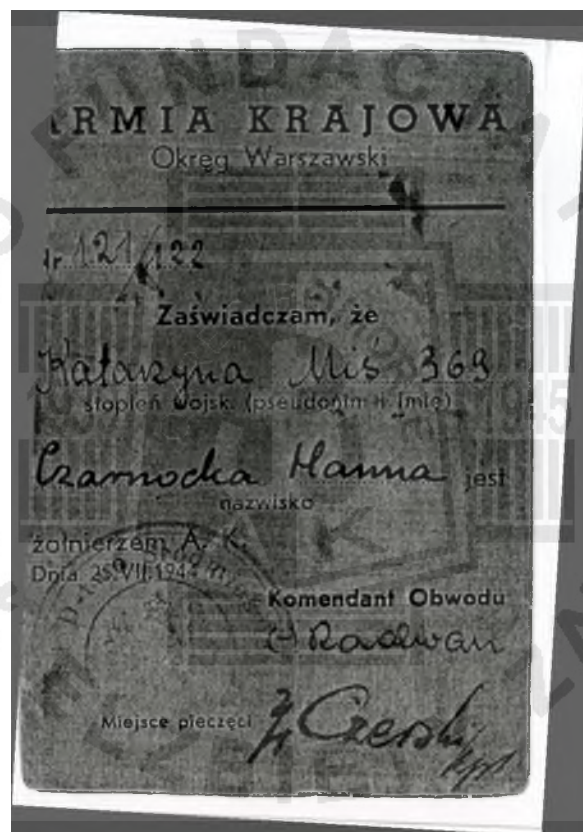 ARMIA KRAJOWA
Okręg Warszawski
Nr. 121/122
Zaświadczam, że
Katarzyna Miś 369
stopień wojsk. (pseudonim i imię)
Czarnocka Hanna jest
nazwisko
żołnierzem A. K.
Dnia 25.VII.1944
Komendant Obwodu
(-) Radwan
Miejsce pieczęci
Czerski
kpt